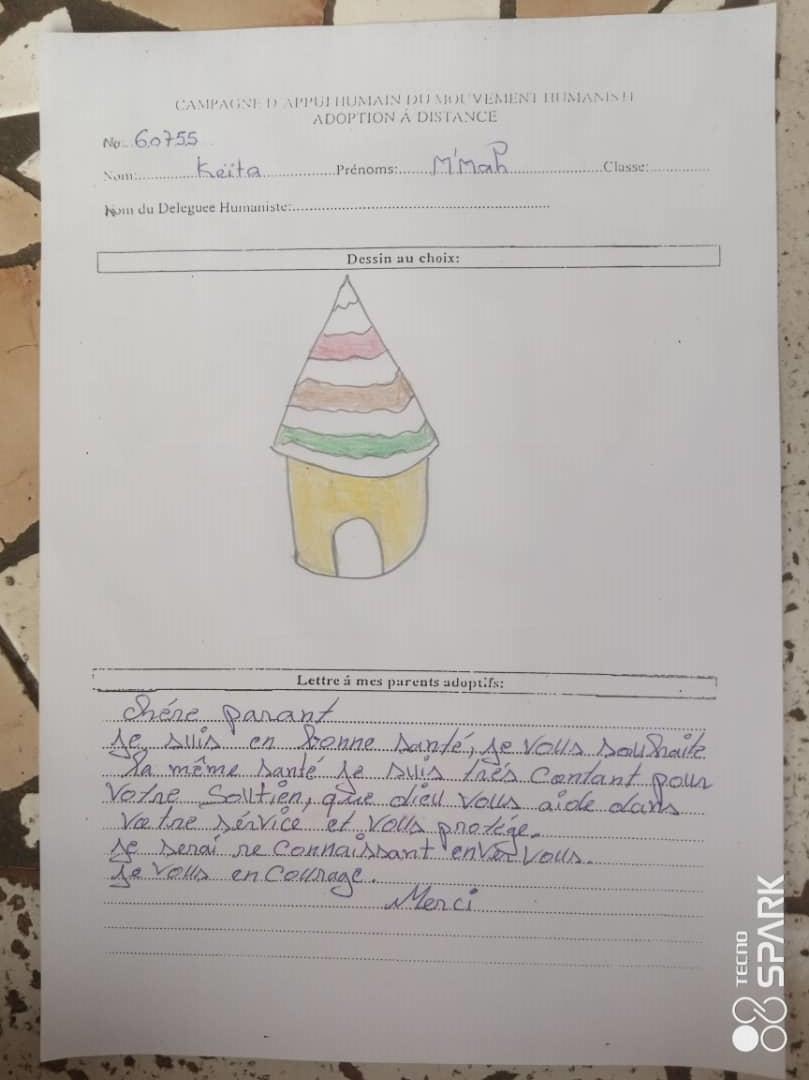 CAMPAGNE D'APPUI HUMAIN DU MOUVEMENT HUMANISTE
ADOPTION Á DISTANCE
No...60755
Nom:..........Keïta..........Prénoms:.......M'Mah..........Classe:..........
Nom du Deleguee Humaniste:..........
Dessin au choix:
Lettre á mes parents adoptifs:
chére parant
je suis en bonne santé, je vous souhaite
la même santé je suis trés contant pour
votre soutien, que dieu vous aide dans
vœtre sérvice et vous protége.
je serai re connaissant enver vous.
je vous en courage.
Merci
TECNO
SPARK